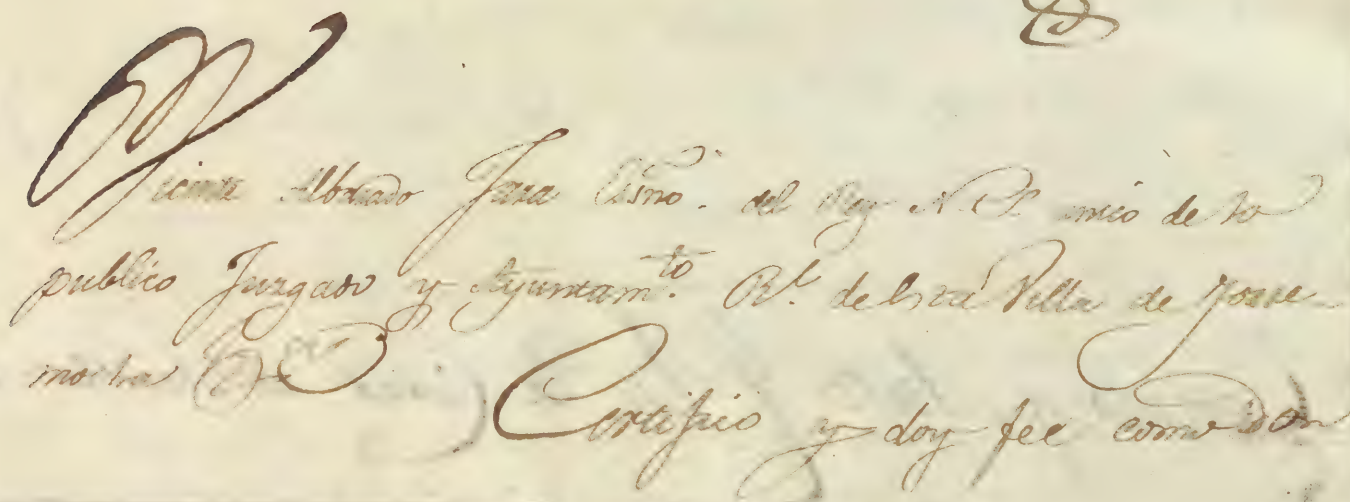 Vicente Albarado Jara Esno. del Rey N. S. unico de lo
publico Juzgado y Ayuntam.to Rl. de esta Villa de Torre
mocha
Certifico y doy fee como Don